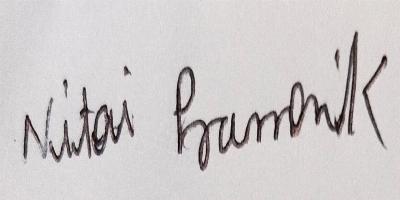 Nitai Pramanik